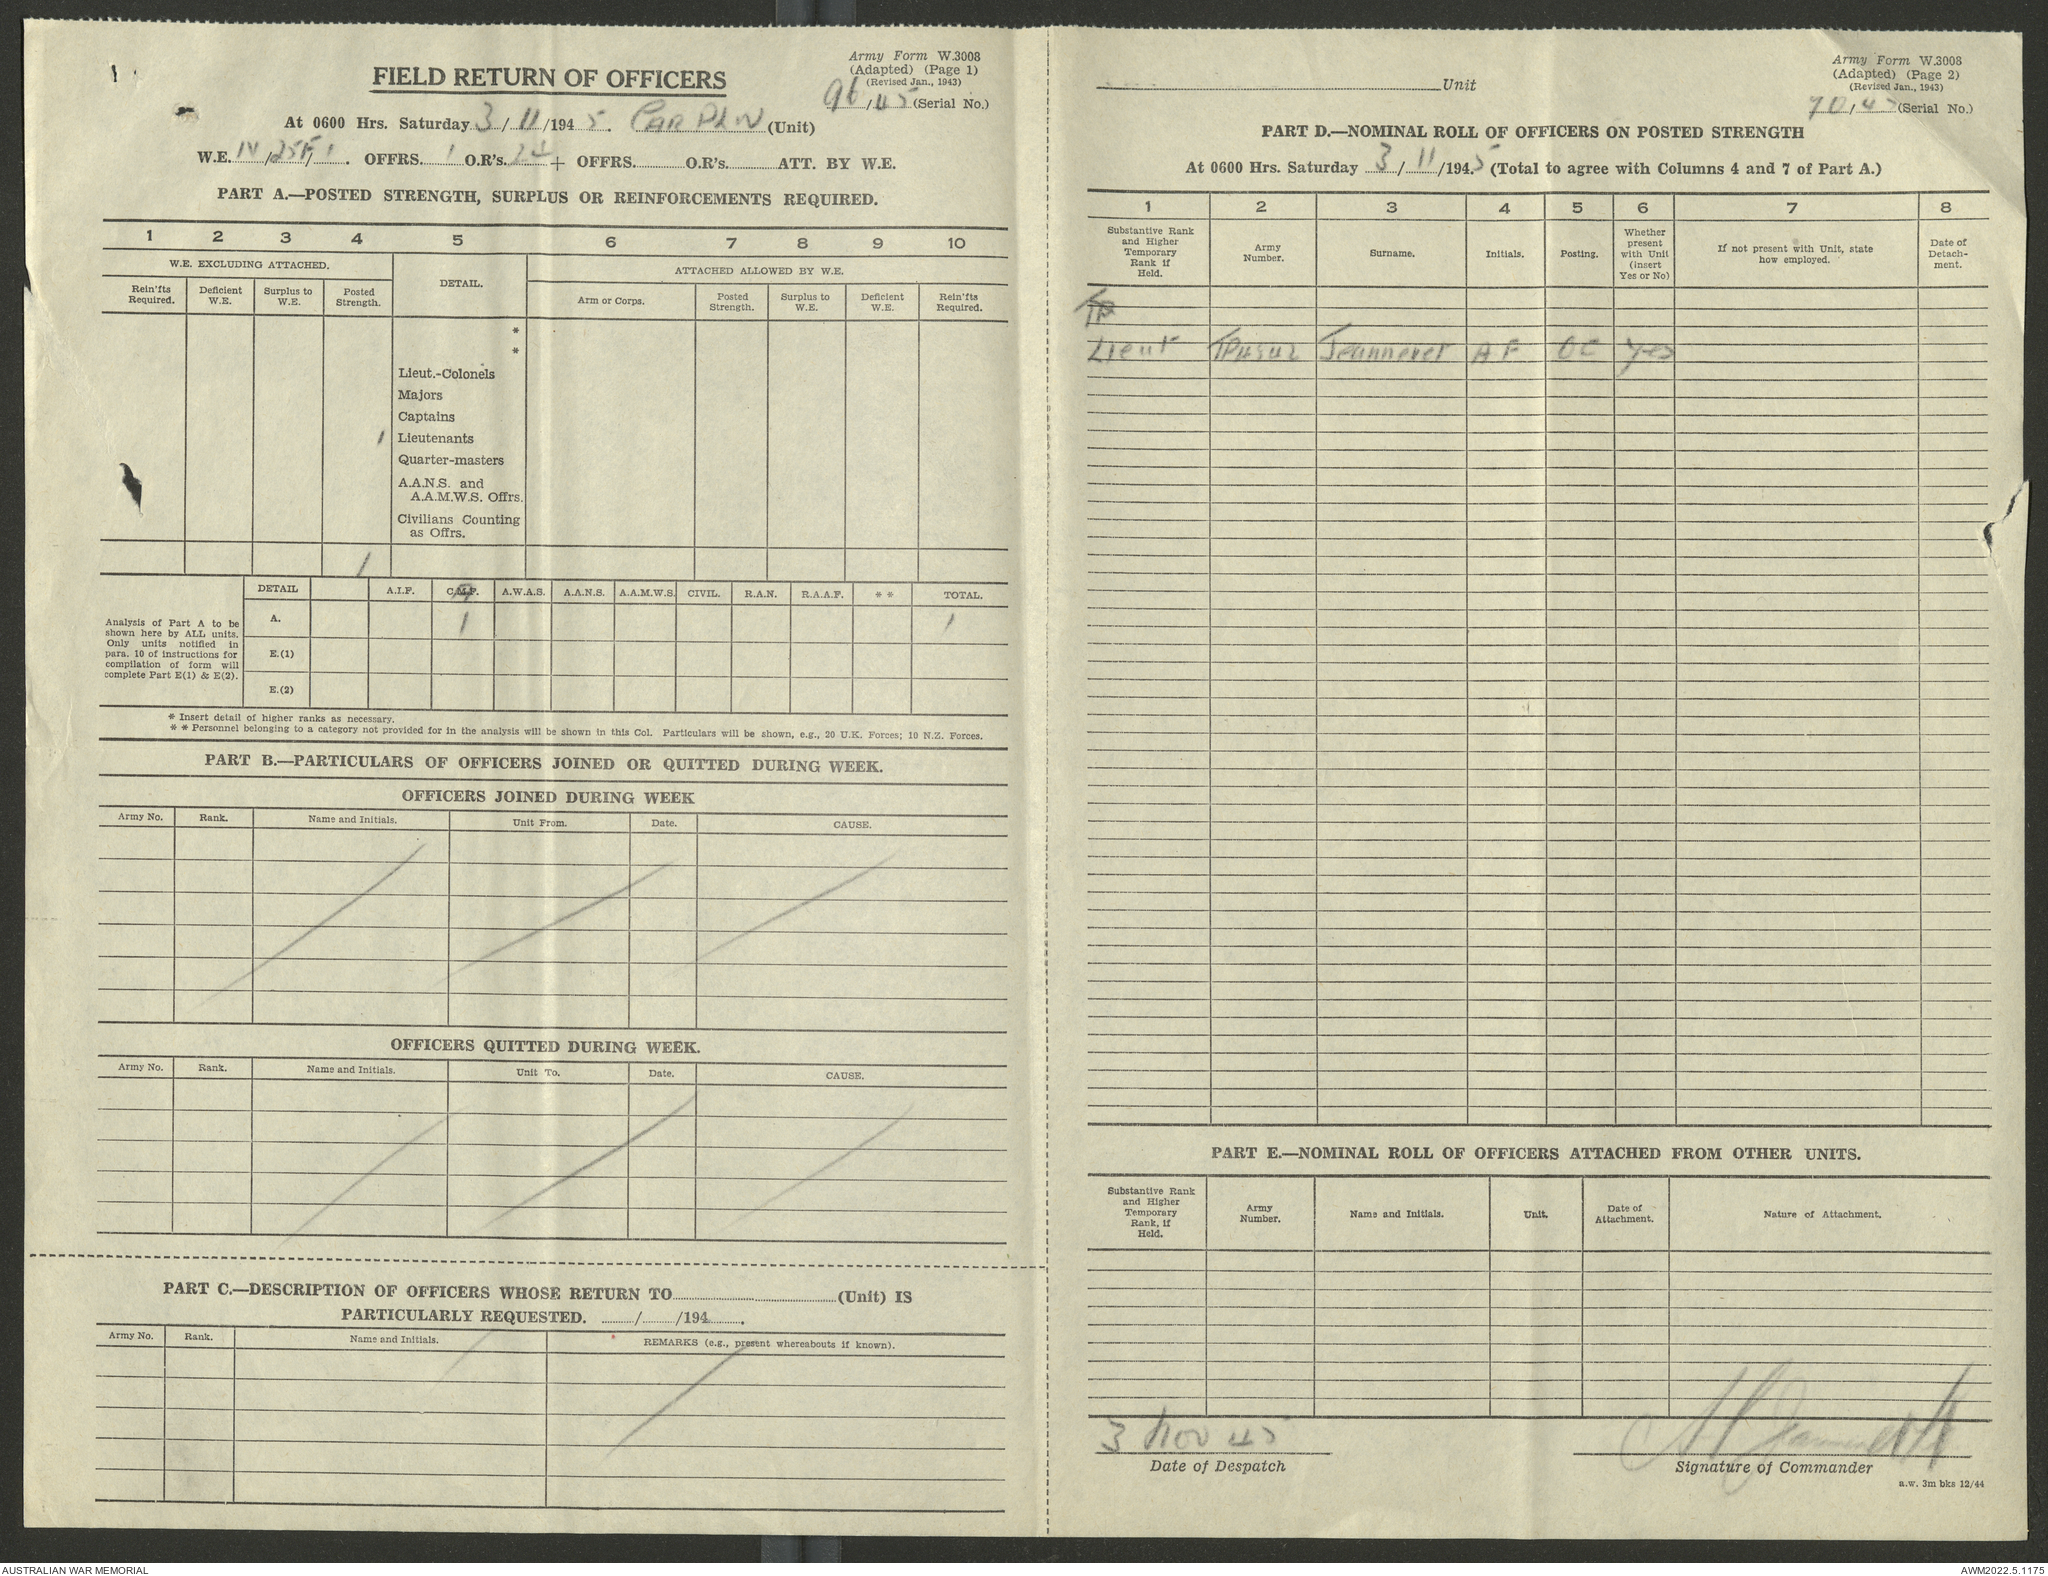 Army Form W.3008
(Adapted) (Page 1)
(Revised Jan., 1943)
FIELD RETURN OF OFFICERS
96/45 (Serial No.)
At 0600 Hrs. Saturday 3/11/1945. (Unit)
W.E. OFFRS. 1 O.R's. 24 + OFFRS. O.R's. ATT. BY W.E.
PART A.—POSTED STRENGTH, SURPLUS OR REINFORCEMENTS REQUIRED.
1 2 3 4 5 6 7 8 9 10
W.E. EXCLUDING ATTACHED. DETAIL. ATTACHED ALLOWED BY W.E.
Rein'fts Required. Deficient W.E. Surplus to W.E. Posted Strength. Arm or Corps. Posted Strength. Surplus to W.E. Deficient W.E. Rein'fts Required.
*
*
Lieut.-Colonels
Majors
Captains
1 Lieutenants
Quarter-masters
A.A.N.S. and
A.A.M.W.S. Offrs.
Civilians Counting
as Offrs.
1
DETAIL A.I.F. C.M.F. A.W.A.S. A.A.N.S. A.A.M.W.S. CIVIL. R.A.N. R.A.A.F. * * TOTAL.
Analysis of Part A to be
shown here by ALL units.
Only units notified in
para. 10 of instructions for
compilation of form will
complete Part E(1) & E(2).
A. 1 1
E.(1)
E.(2)
* Insert detail of higher ranks as necessary.
* * Personnel belonging to a category not provided for in the analysis will be shown in this Col. Particulars will be shown, e.g., 20 U.K. Forces; 10 N.Z. Forces.
PART B.—PARTICULARS OF OFFICERS JOINED OR QUITTED DURING WEEK.
OFFICERS JOINED DURING WEEK
Army No. Rank. Name and Initials. Unit From. Date. CAUSE.
OFFICERS QUITTED DURING WEEK.
Army No. Rank. Name and Initials. Unit To. Date. CAUSE.
PART C.—DESCRIPTION OF OFFICERS WHOSE RETURN TO (Unit) IS
PARTICULARLY REQUESTED. / /194 .
Army No. Rank. Name and Initials. REMARKS (e.g., present whereabouts if known).
Army Form W.3008
(Adapted) (Page 2)
(Revised Jan., 1943)
Unit
(Serial No.)
PART D.—NOMINAL ROLL OF OFFICERS ON POSTED STRENGTH
At 0600 Hrs. Saturday 3/11/1945 (Total to agree with Columns 4 and 7 of Part A.)
1 2 3 4 5 6 7 8
Substantive Rank and Higher Temporary Rank if Held. Army Number. Surname. Initials. Posting. Whether present with Unit (insert Yes or No) If not present with Unit, state how employed. Date of Detach-ment.
TP
Lieut Jeanneret A F OC Yes
PART E.—NOMINAL ROLL OF OFFICERS ATTACHED FROM OTHER UNITS.
Substantive Rank and Higher Temporary Rank, if Held. Army Number. Name and Initials. Unit. Date of Attachment. Nature of Attachment.
3 Nov 45
Date of Despatch
Signature of Commander
a.w. 3m bks 12/44
AUSTRALIAN WAR MEMORIAL
AWM2022.5.1175